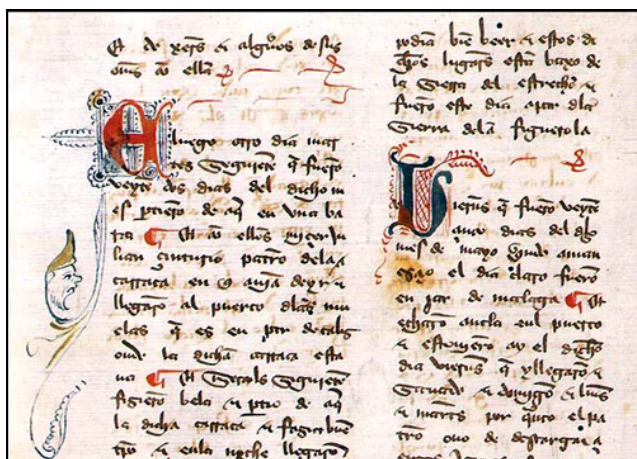 de xerez ⁊ algũos de sus
oms cõ ellos
E luego otro dia mar
tes seguiẽte q̃ fuerõ
veyte dos dias del dicho m
es ptierõ de aq̃ en vna ba
rca ¶ Et cõ ellos miçer ju
lian patrõ dela
carraca en q̃ auia de yr ⁊
llegarõ al puerto dlas mu
elas q̃ es en par de caliz
onde la dicha carraca esta
ua ¶ Et seguiẽte
fizierõ bela ⁊ ptierõ de aq̃
la dicha carraca ⁊ fazia buẽ
tpõ ⁊ enla noche llegarõ
podiã biẽ veer ⁊ estos di
chos lugares estã baxo de
la sierra del estrecho ⁊
fuerõ este dia a par dla
sierra dela figuerola
Viernes q̃ fuerõ veynte
dias del dho
mes de mayo aman
el dia claro fuerõ
en par de malaga ¶ Et
echarõ ancla enl puerto
⁊ estouierõ ay el dicho
dia viernes q̃ y llegarõ ⁊
⁊ domigo ⁊ lunes
⁊ martes por quãto el pa
trõ ouo de descargar a